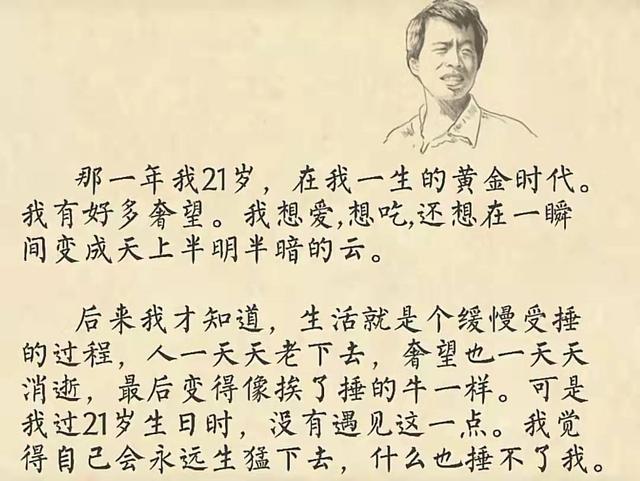 那一年我21岁，在我一生的黄金时代。
我有好多奢望。我想爱,想吃,还想在一瞬
间变成天上半明半暗的云。
后来我才知道，生活就是个缓慢受捶
的过程，人一天天老下去，奢望也一天天
消逝，最后变得像挨了捶的牛一样。可是
我过21岁生日时，没有遇见这一点。我觉
得自己会永远生猛下去，什么也捶不了我。